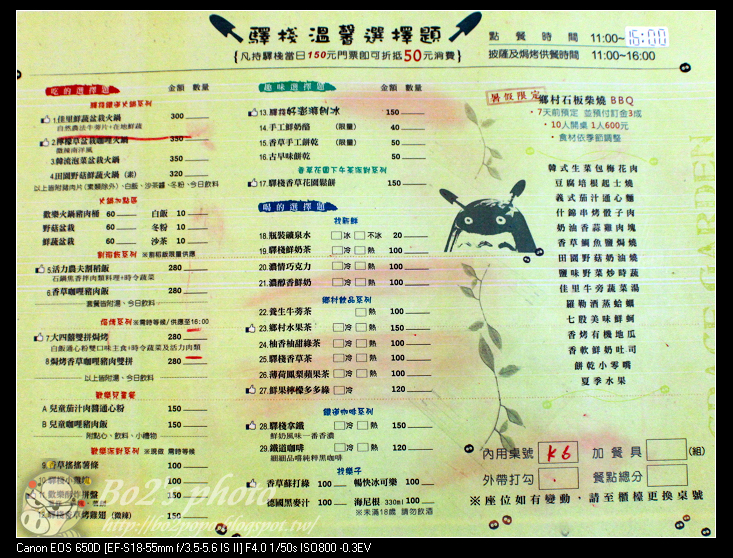 驛棧溫馨選擇題
{凡持驛棧當日150元門票即可折抵50元消費}
點餐時間 11:00~15:00
披薩及焗烤供餐時間 11:00~16:00
吃的選擇題 金額 數量
1.佳里鮮蔬盆栽火鍋 300
自然農法牛蒡片+在地鮮蔬
2.檸檬草盆栽咖哩火鍋 350
微辣南洋風
3.韓流泡菜盆栽火鍋 350
4.田園野菇鮮蔬火鍋 (素) 320
以上皆附豬肉片(素類除外)、白飯、沙茶醬、冬粉、今日飲料
歡樂火鍋豬肉桶 60 白飯 10
野菇盆栽 60 冬粉 10
鮮蔬盆栽 60 沙茶 10
5.活力農夫割稻飯 280
石鍋焦香拌肉類料理+時令蔬菜
6.香草咖哩豬肉飯 280
套餐皆附湯、今日飲料
※需時等候/供應至16:00
7.大四囍雙拼焗烤 280
白飯通心粉雙口味主食+時令蔬菜及活力肉類
8.焗烤香草咖哩豬肉雙拼 280
以上皆附湯、今日飲料
A 兒童茄汁肉醬通心粉 150
B 兒童咖哩豬肉飯 150
附點心、飲料、小禮物
※現做 需時等候
9.香草搖搖薯條 100
100
150
150
趣味選擇題 金額 數量
13. 150
14.手工鮮奶酪 (限量) 40
15.香草手工餅乾 (限量) 50
16.古早味餅乾 50
17.驛棧香草花園鬆餅 150
喝的選擇題
18.瓶裝礦泉水 冰 不冰 20
19.驛棧鮮奶茶 冷 熱 100
20.濃情巧克力 冷 熱 100
21.濃醇香鮮奶 冷 熱 100
22.養生牛蒡茶 熱 100
23.鄉村水果茶 冷 熱 150
24.柚香柚甜綠茶 冷 熱 100
25.驛棧香草茶 冷 熱 100
26.薄荷鳳梨蘋果茶 冷 熱 100
27.鮮果檸檬多多綠 冷 120
28.驛棧拿鐵 冷 熱 150
鮮奶風味一番香濃
29.鐵道咖啡 冷 熱 120
細細品嚐純粹黑咖啡
香草蘇打綠 100 暢快冰可樂 100
德國黑麥汁 100 海尼根 330ml 100
※未滿18歲 請勿飲酒
暑假限定 鄉村石板柴燒 BBQ
・7天前預定 並預付訂金3成
・10人開桌 1人600元
・食材依季節調整
韓式生菜包梅花肉
豆腐培根起士燒
義式茄汁通心麵
什錦串烤骰子肉
奶油香蒜雞肉塊
香草鯛魚鹽焗燒
田園野菇奶油燒
鹽味野菜炒時蔬
佳里牛蒡蔬菜湯
羅勒酒蒸蛤蠣
七股美味鮮蚵
香烤有機地瓜
香軟鮮奶吐司
餅乾小零嘴
夏季水果
內用桌號 K6 加餐具 (組)
外帶打勾 餐點總分
※座位如有變動，請至櫃檯更換桌號
Bo2's photo
Canon EOS 650D [EF-S18-55mm f/3.5-5.6 IS II] F4.0 1/50s ISO800 -0.3EV